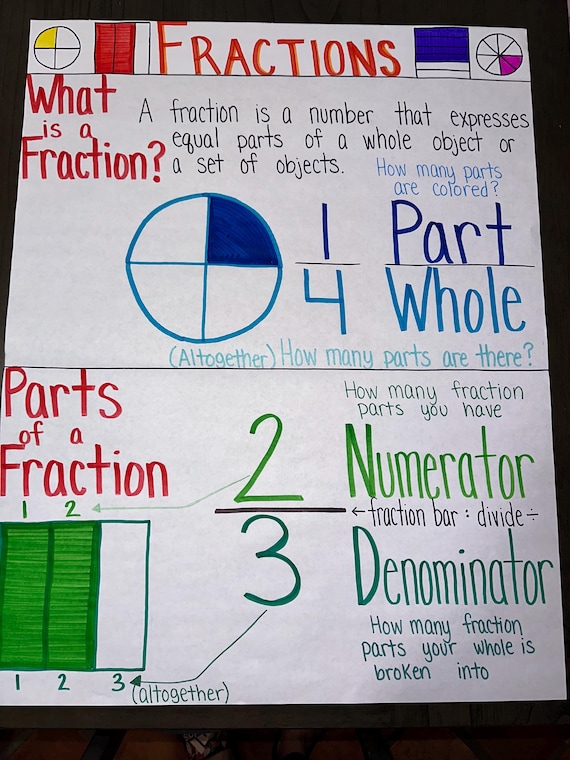 FRACTIONS
What
is a
Fraction?
A fraction is a number that expresses
equal parts of a whole object or
a set of objects.
How many parts
are colored?
1 Part
4 Whole
(Altogether) How many parts are there?
Parts
of a
Fraction
How many fraction
parts you have
2 Numerator
← fraction bar : divide ÷
3 Denominator
How many fraction
parts your whole is
broken into
1 2
1 2 3 (altogether)